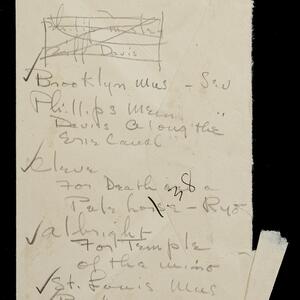 Phillips Mem
Davis
✓ Brooklyn Mus – Sev
Phillips Mem "
Davis Along the
Erie Canal
✓ Cleve
For Death on a
Pale horse – Ryd
✓ Albright
For Temple
of the mind
✓ St. Louis Mus